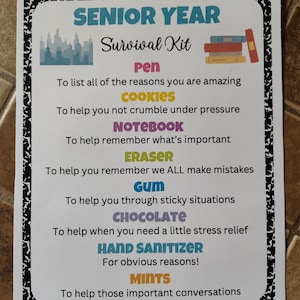 SENIOR YEAR
Survival Kit
PEN
To list all of the reasons you are amazing
COOKIES
To help you not crumble under pressure
NOTEBOOK
To help remember what's important
ERASER
To help you remember we ALL make mistakes
GUM
To help you through sticky situations
CHOCOLATE
To help when you need a little stress relief
HAND SANITIZER
For obvious reasons!
MINTS
To help those important conversations